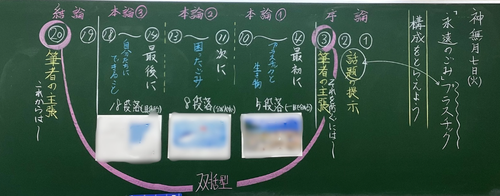 神無月七日(火)
「永遠のごみ」プラスチック
構成をとらえよう
序論
①
話題提示
②
③
筆者の主張
それを防ぐには〜
本論①
④
最初に
プラスチックと生物
⑩
5段落
本論②
⑪
次に
困ったごみ
⑬
8段落
本論③
⑭
最後に
自分たちにできること
⑱
18段落
結論
⑲
⑳
筆者の主張
これからは〜
双括型